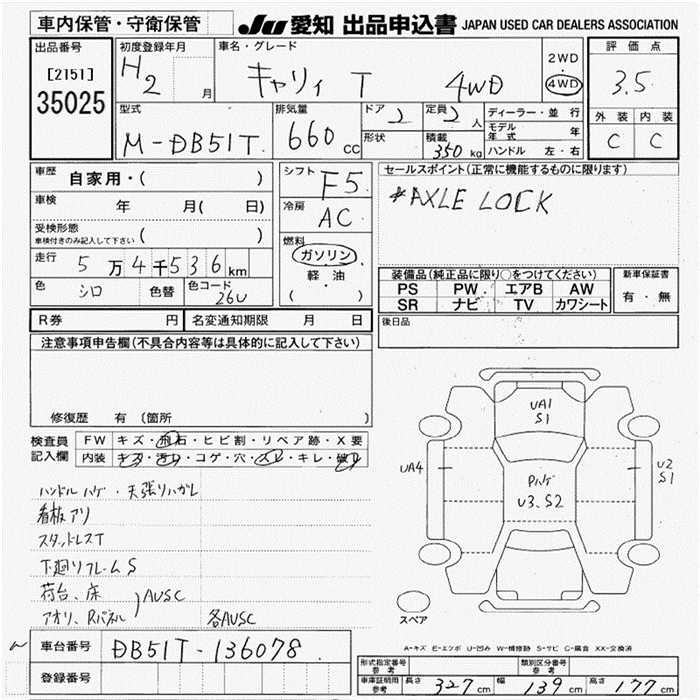 車内保管・守衛保管
JU 愛知 出品申込書 JAPAN USED CAR DEALERS ASSOCIATION
出品番号
[2151]
35025
初度登録年月
H2 月
車名・グレード
キャリィ T 4WD
2WD
4WD
評価点
3.5
型式
M-DB51T
排気量
660 cc
ドア 2
形状
定員 2 人
積載 350 kg
ディーラー・並行
モデル年式 年
ハンドル 左・右
外装 内装
C C
車歴 自家用・( )
車検 年 月( 日)
受検形態
車検付きのみ記入して下さい ( )
走行 5万4千536km
色 シロ 色替 色コード 26U
シフト F5
冷房 AC
燃料
ガソリン
軽油
( )
セールスポイント(正常に機能するものに限ります)
*AXLE LOCK
装備品(純正品に限り○をつけてください)
PS PW エアB AW
SR ナビ TV カワシート
新車保証書
有・無
R券 円 名変通知期限 月 日
後日品
注意事項申告欄(不具合内容等は具体的に記入して下さい)
修復歴 有 (箇所 )
検査員記入欄
FW キズ・飛石・ヒビ割・リペア跡・X要
内装 キズ・汚レ・コゲ・穴・スレ・キレ・破レ
ハンドルハゲ・天張リハガレ
看板アリ
スタッドレスT
下廻リフレームS
荷台、床
アオリ、Rパネル
AUSC
各AUSC
UA1
S1
UA4
U2
S1
U3、S2
スペア
A-キズ E-エクボ U-凹み W-補修跡 S-サビ C-腐食 XX-交換済
車台番号 DB51T-136078
登録番号
型式指定番号 参考
類別区分番号 参考
車庫証明用 参考 長さ 327cm 幅 139cm 高さ 177cm